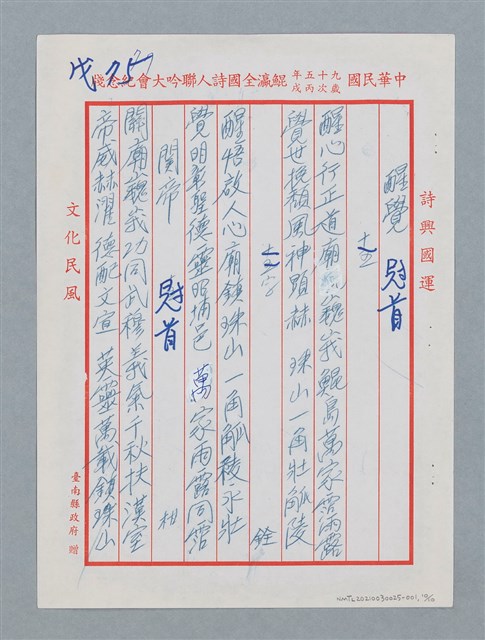 中華民國九十五年歲次丙戌鯤瀛全國詩人聯吟大會紀念箋
詩興國運
醒覺 慰首
醒心行正道廟 巍峩鯤島萬家霑雨露
覺世挽頹風神顯赫 珠山一角壯觚陵
銓
醒悟啟人心廟鎮珠山一角觚稜永壯
覺明彰聖德靈昭埔邑 萬家雨露同霑
關帝 慰首
關廟巍峩功同武穆義氣千秋扶漢室
帝威赫濯德配文宣英靈萬載鎮珠山
文化民風
臺南縣政府 贈
NMTL20210030025-001,